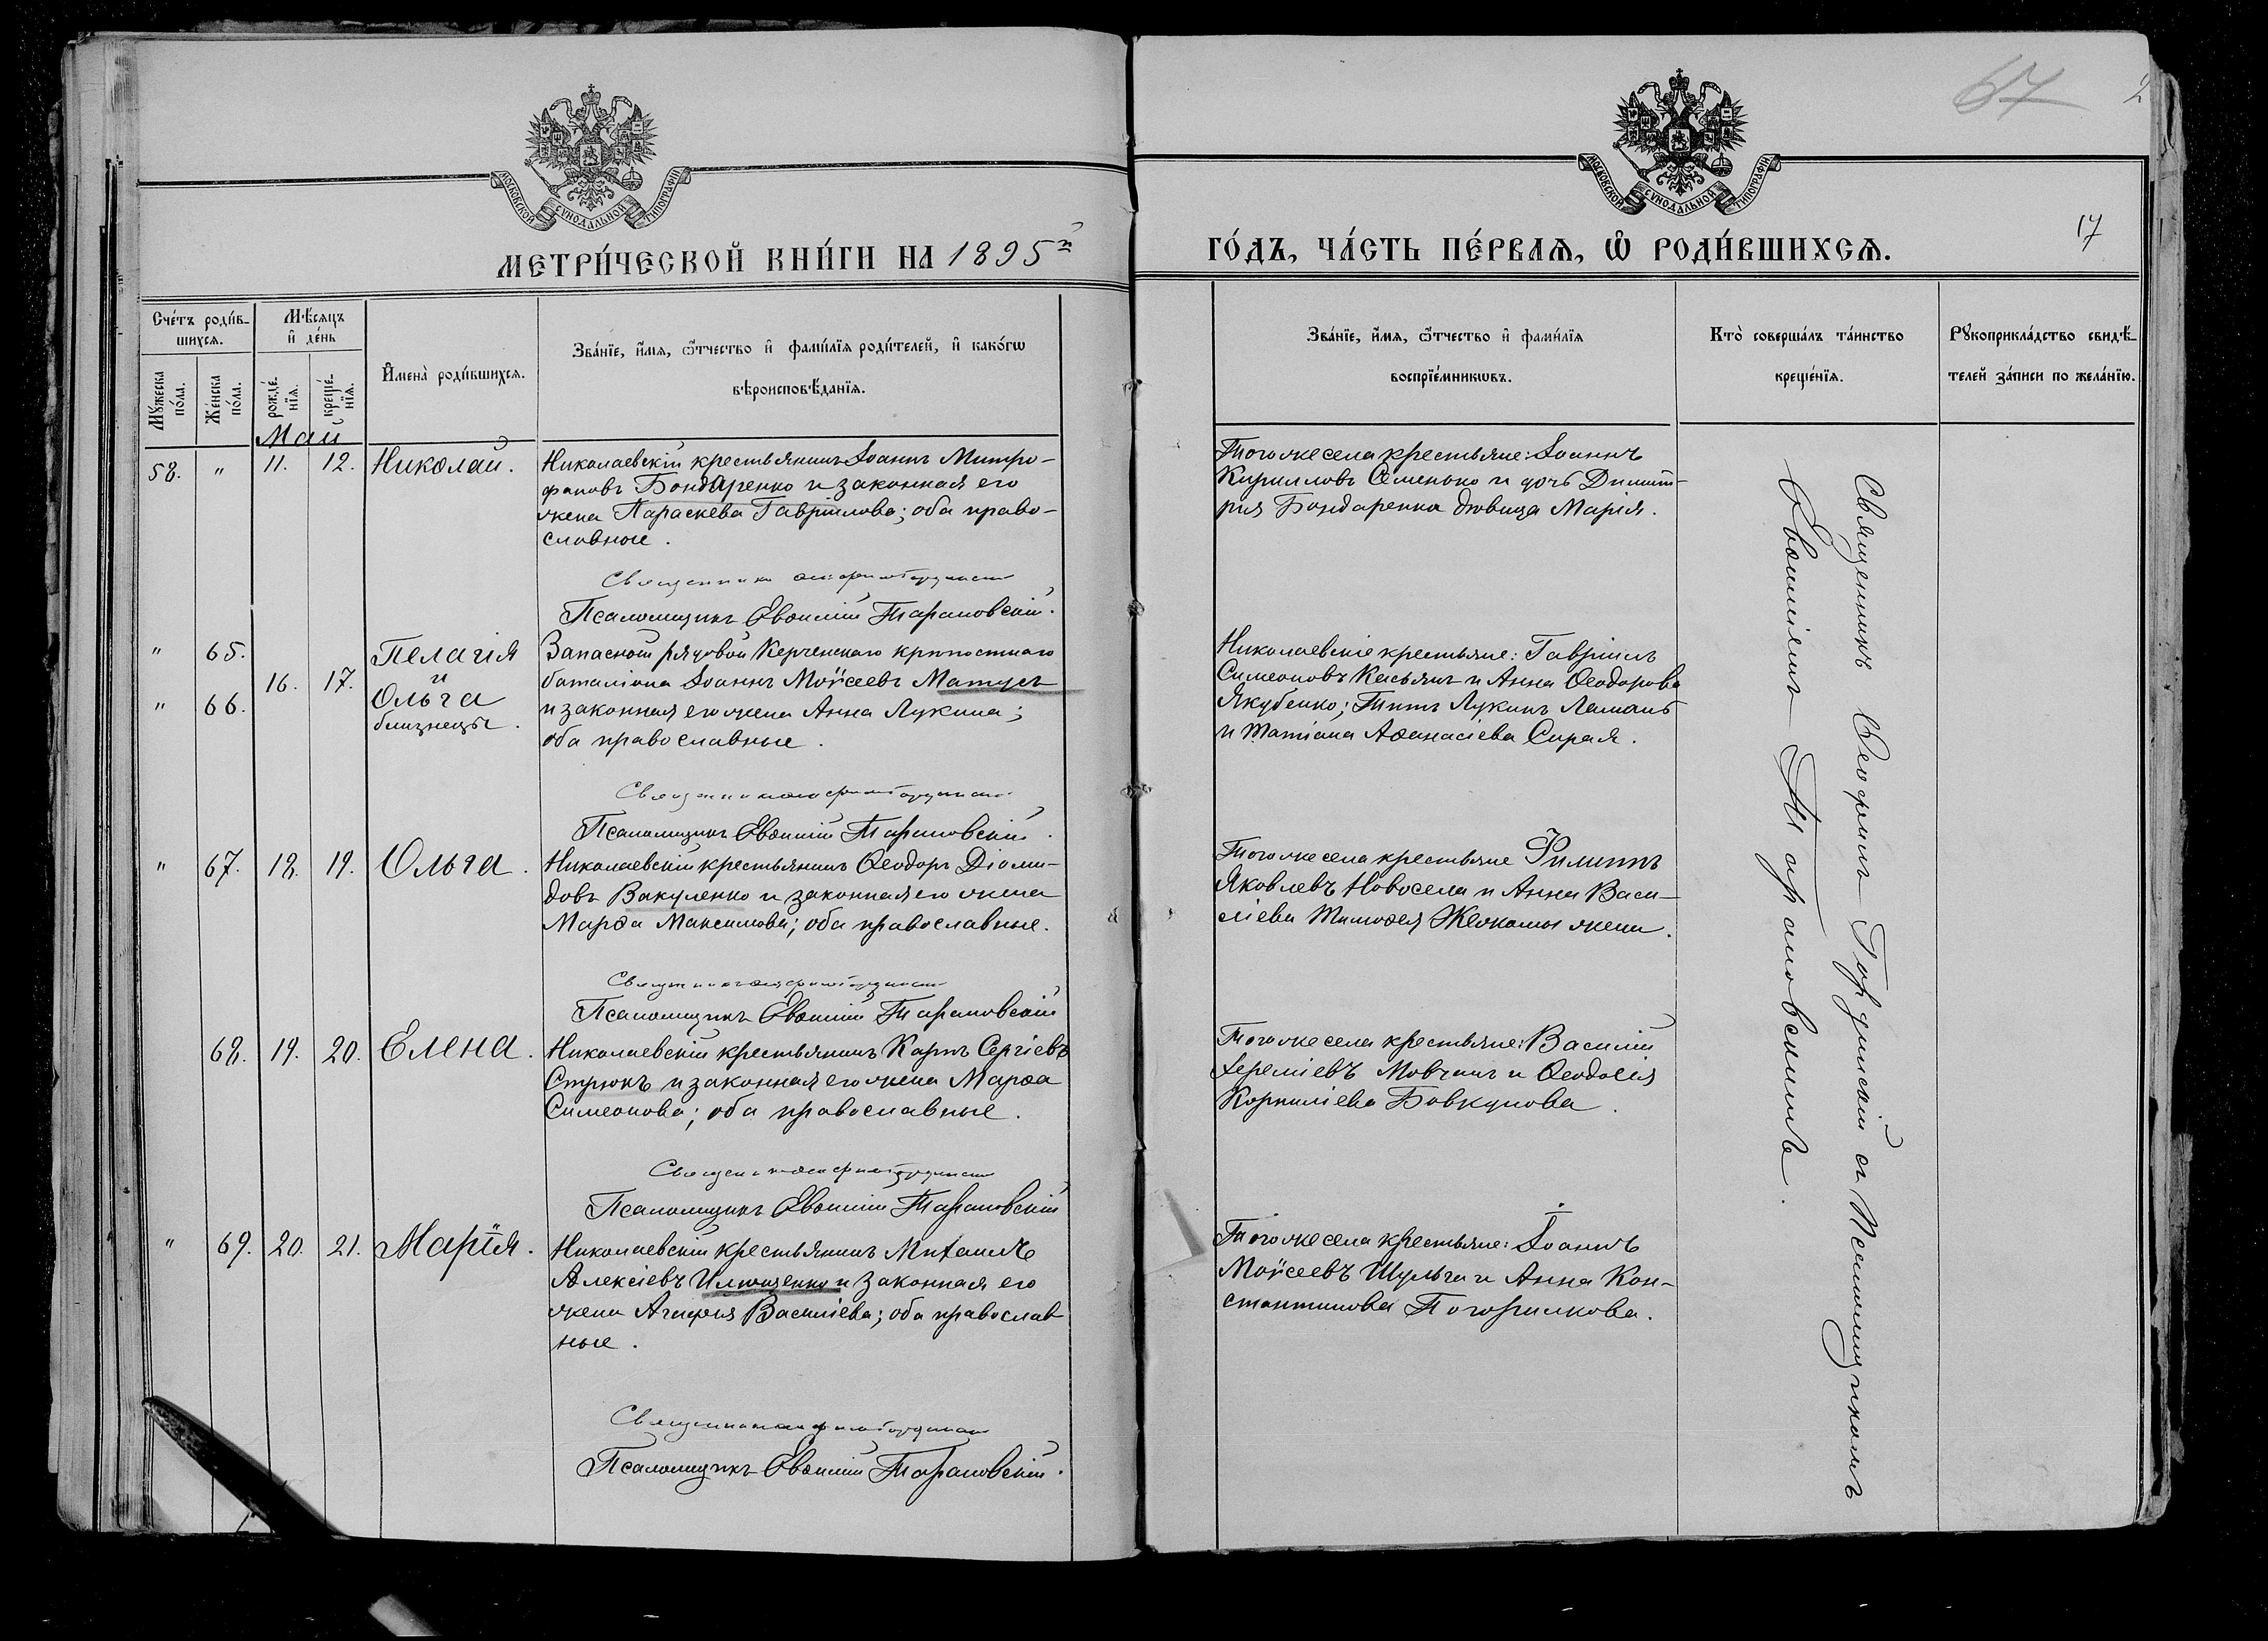 67
17
МОСКОВСКОЙ СѴНОДАЛЬНОЙ ТИПОГРАФІИ
МОСКОВСКОЙ СѴНОДАЛЬНОЙ ТИПОГРАФІИ
МЕТРИ́ЧЕСКОЙ КНИ́ГИ НА 1895й
ГО́ДЪ, ЧА́СТЬ ПЕ́РВАѦ, Ѡ РОДИ́ВШИХСѦ.
Сче́тъ роди́в-
шихсѧ.
Мѣ́сѧцъ
и҆ де́нь
Мꙋ́жеска
по́ла.
Же́нска
по́ла.
рожде́-
нїѧ.
креще́-
нїѧ.
И҆мена̀ роди́вшихсѧ.
Зва́нїе, и҆́мѧ, ѻ҆́тчество и҆ фами́лїѧ роди́телей, и҆ како́гѡ
вѣроисповѣ́данїѧ.
Зва́нїе, и҆́мѧ, ѻ҆́тчество и҆ фами́лїѧ
воспрїе́мникѡвъ.
Кто̀ соверша́лъ та́инство
креще́нїѧ.
Рꙋкоприкла́дство свидѣ́-
телей за́писи по жела́нїю.
Май
58. " 11. 12. Николай.
Николаевскій крестьянинъ Іоаннъ Митро-
фановъ Бондаренко и законная его
жена Параскева Гавріилова; оба право-
славные.
Псаломщикъ Евѳимій Тарановскій.
Тогоже села крестьяне: Іоаннъ
Кирилловъ Семенько и дочь Димит-
рія Бондаренка дѣвица Марія.
" 65.
" 66.
16. 17.
Пелагія
и
Ольга
близнецы.
Запасной рядовой Керченскаго крѣпостнаго
баталіона Іоаннъ Моѵсеевъ Матусъ
и законная его жена Анна Лукина;
оба православные.
Псаломщикъ Евѳимій Тарановскій.
Николаевскіе крестьяне: Гавріилъ
Симеоновъ Касьянъ и Анна Ѳеодорова
Якубенко; Титъ Лукинъ Ламанъ
и Татіана Аѳанасіева Сирая.
" 67. 18. 19. Ольга.
Николаевскій крестьянинъ Ѳеодоръ Діоми-
довъ Вакуленко и законная его жена
Марѳа Максимова; оба православные.
Псаломщикъ Евѳимій Тарановскій
Тогоже села крестьяне Филиппъ
Яковлевъ Новосела и Анна Васи-
ліева Тимоѳея жена.
68. 19. 20. Елена.
Николаевскій крестьянинъ Карпъ Сергіевъ
Стрюкъ и законная его жена Марѳа
Симеонова; оба православные.
Псаломщикъ Евѳимій Тарановскій
Тогоже села крестьяне: Василій
Іереміевъ Мовчанъ и Ѳеодосія
Корниліева Бовкунова.
" 69. 20. 21. Марія.
Николаевскій крестьянинъ Михаилъ
Алексіевъ Ильющенко и законная его
жена Агафія Василіева; оба православ
ные.
Псаломщикъ Евѳимій Тарановскій.
Тогоже села крестьяне: Іоаннъ
Моѵсеевъ Шульга и Анна Кон-
стантинова Погорилкова.
Священникъ Ѳеофилъ Гординскій съ Псаломщикомъ
Евѳиміемъ Тарановскимъ.